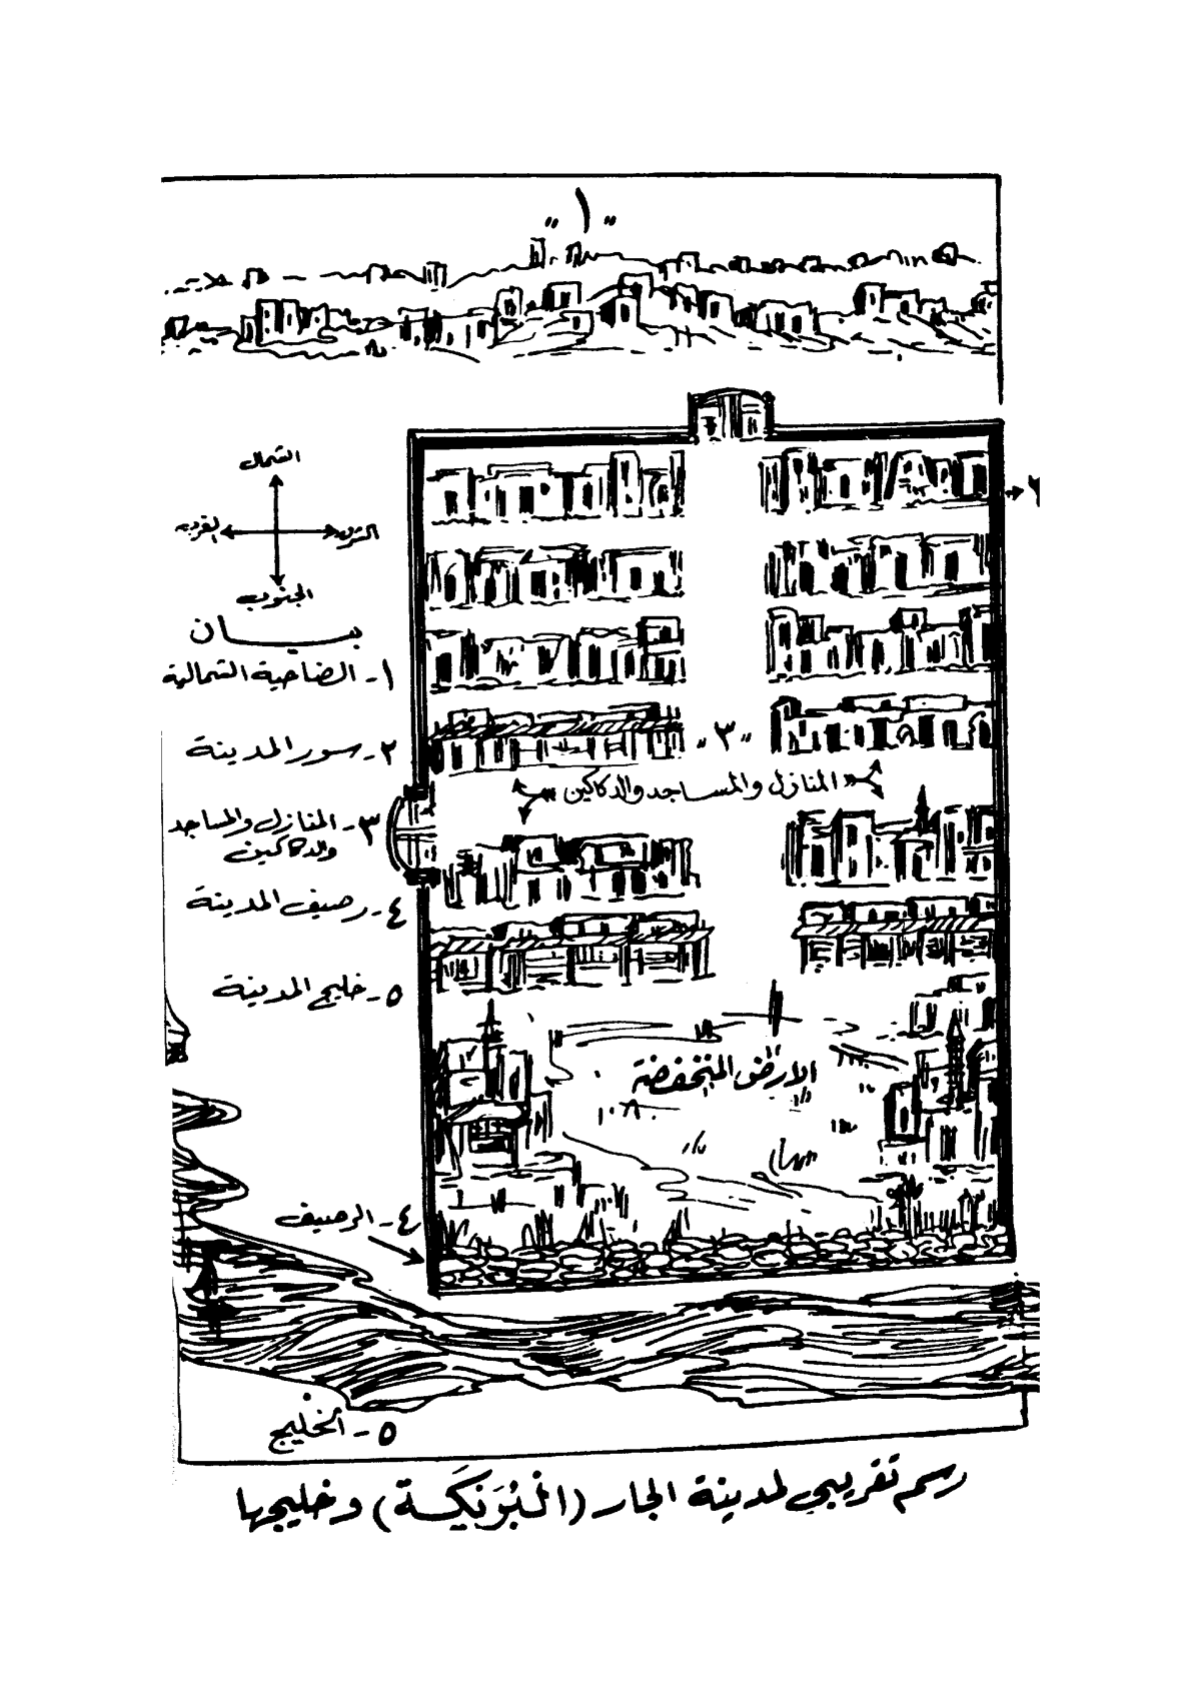 "١"
الشمال
الغرب
الشرق
الجنوب
بيـــان
١- الضاحية الشمالية
٢- سور المدينة
٣- المنازل والمساجد
والدكاكين
٤- رصيف المدينة
٥- خليج المدينة
"٣"
المنازل والمساجد والدكاكين
الارض المنخفضة
٤- الرصيف
٥- الخليج
رسم تقريبي لمدينة الجار (البُرَيْكَة) وخليجها